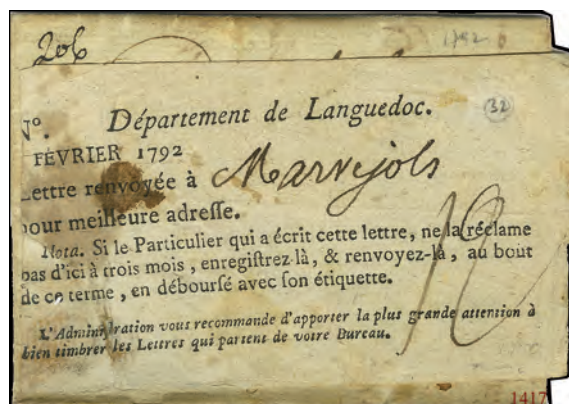 206
1792
N°. Département de Languedoc.
32
FÉVRIER 1792
Lettre renvoyée à Marvejols
pour meilleure adreſſe.
Nota. Si le Particulier qui a écrit cette lettre, ne la réclame
pas d'ici à trois mois, enregiſtrez-là, & renvoyez-là, au bout
de ce terme, en débourſé avec ſon étiquette.
12
L'Adminiſtration vous recommande d'apporter la plus grande attention à
bien timbrer les Lettres qui partent de votre Bureau.
1417